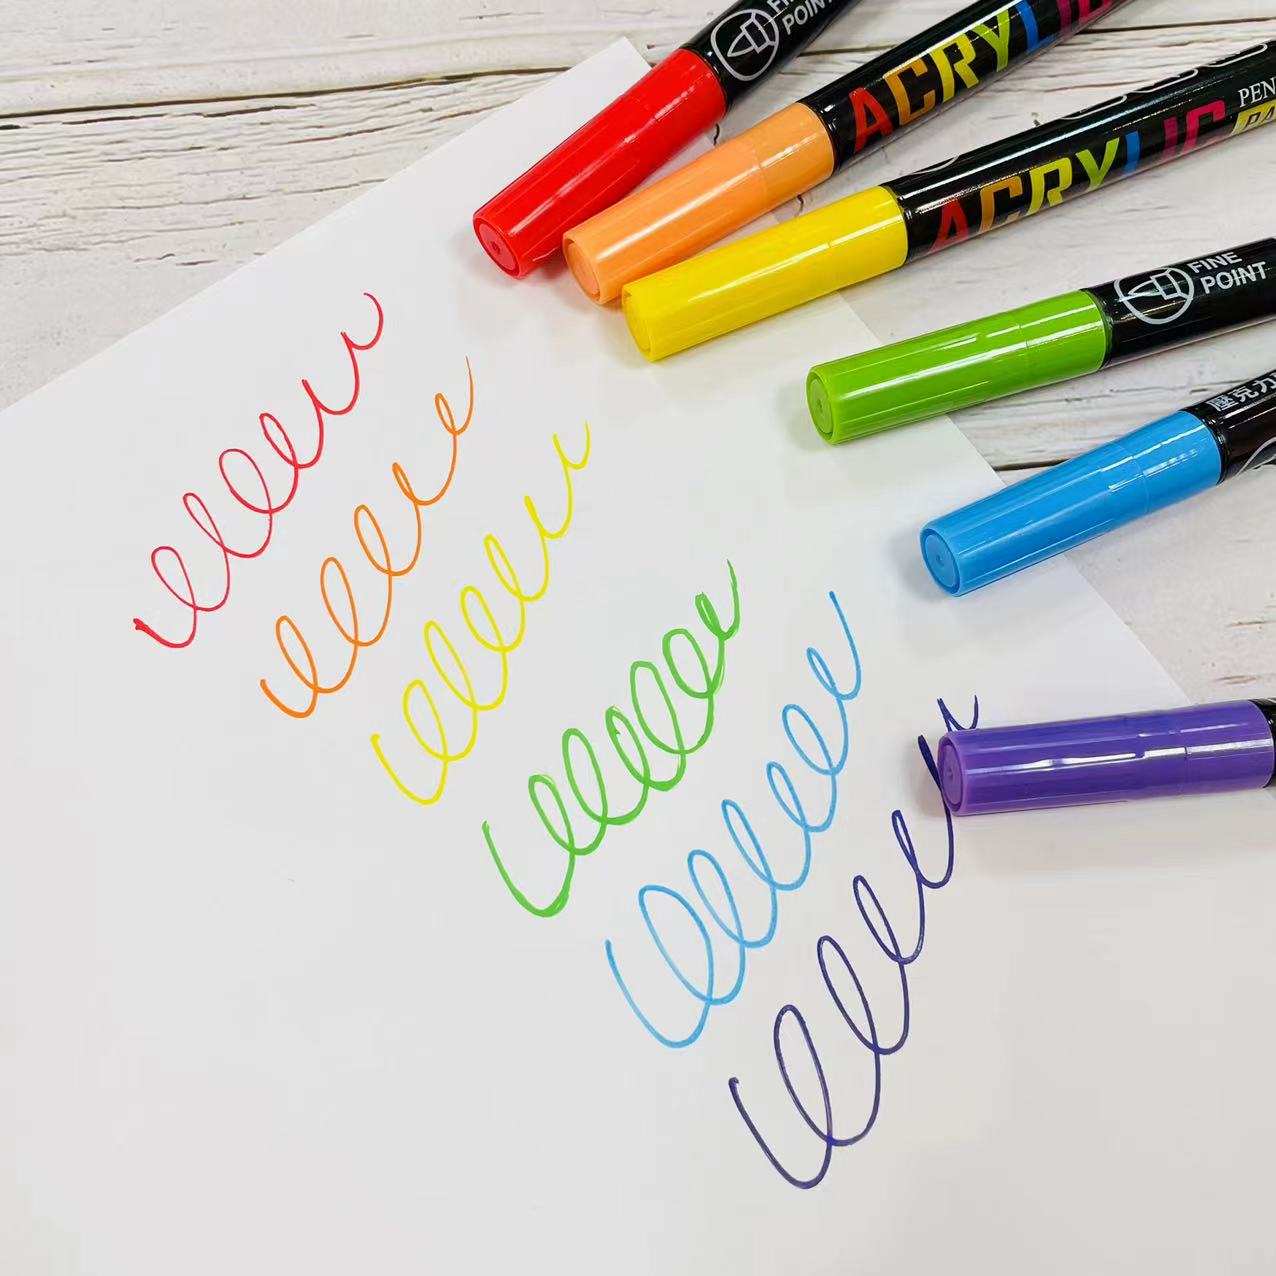 FINE
POINT
ACRYLIC
ACRYLIC
PEN
FINE
POINT
壓克力